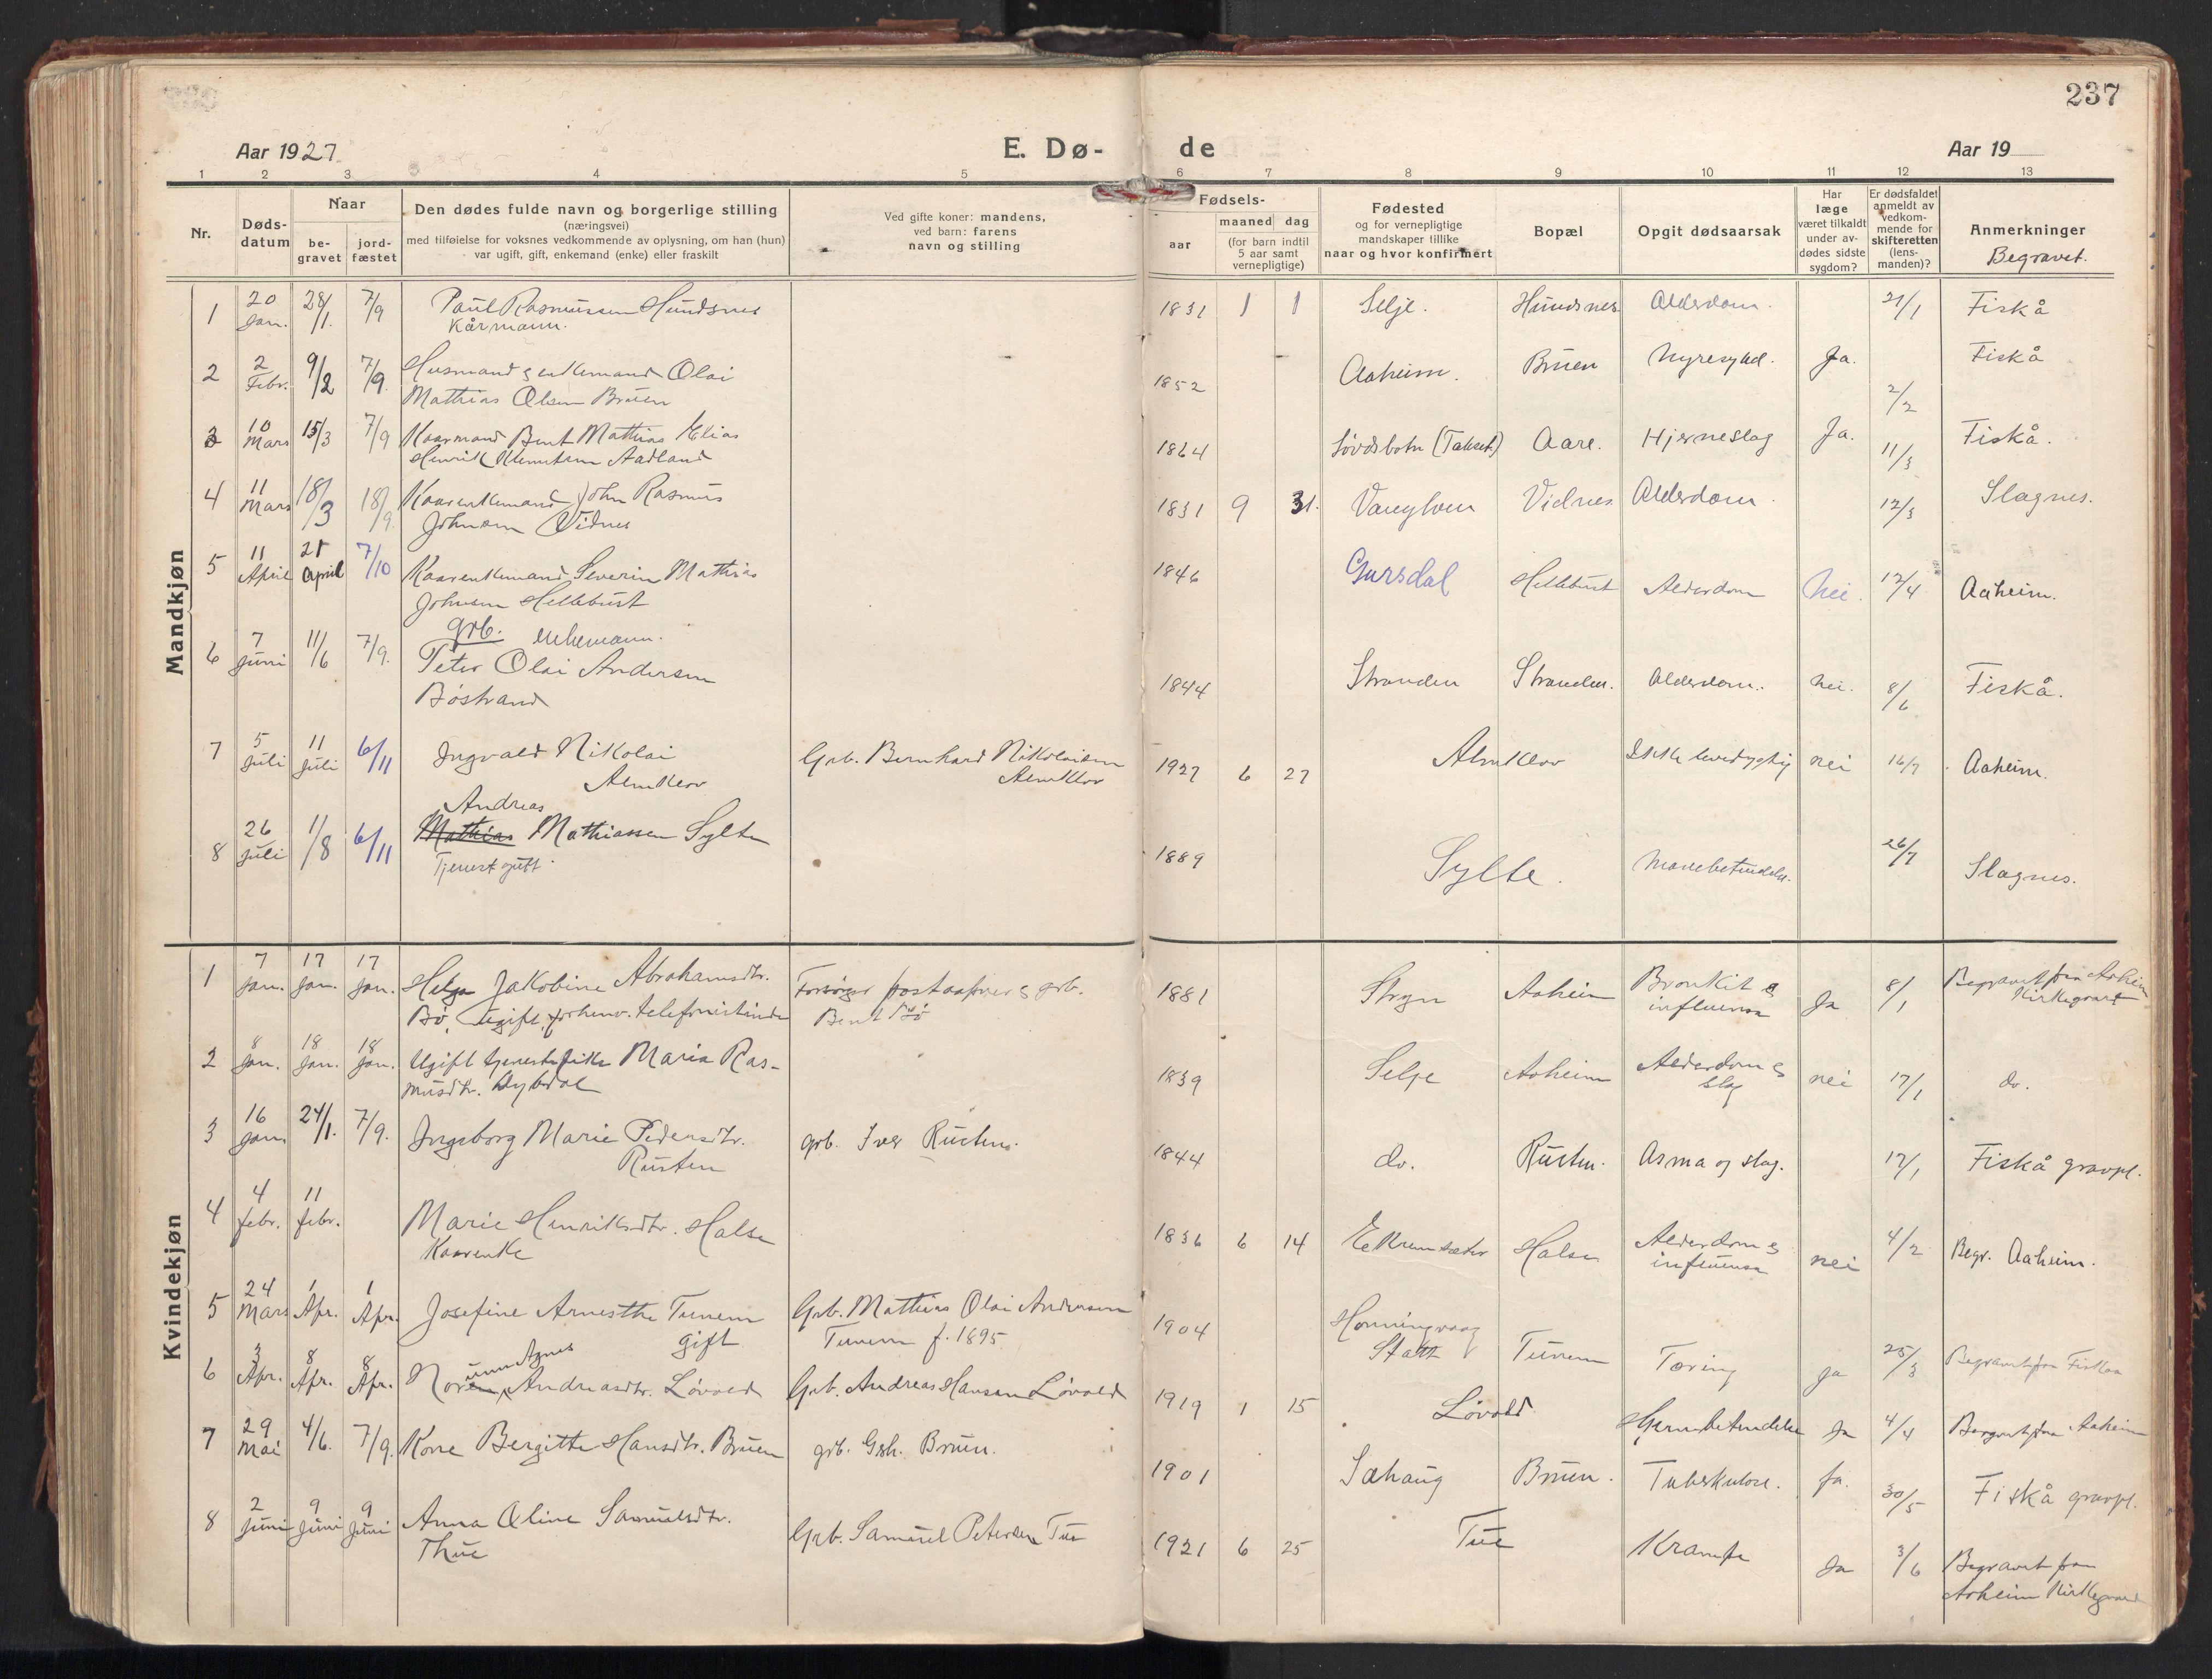 237
Aar 1927
E. Dø-
de
Aar 19
1 2 3 4 5 6 7 8 9 10 11 12 13
Nr.
Døds-
datum
Naar
be-
gravet
jord-
fæstet
Den dødes fulde navn og borgerlige stilling
(næringsvei)
med tilføielse for voksnes vedkommende av oplysning, om han (hun)
var ugift, gift, enkemand (enke) eller fraskilt
Ved gifte koner: mandens,
ved barn: farens
navn og stilling
Fødsels-
aar
maaned dag
(for barn indtil
5 aar samt
vernepligtige)
Fødested
og for vernepligtige
mandskaper tillike
naar og hvor konfirmert
Bopæl
Opgit dødsaarsak
Har
læge
været tilkaldt
under av-
dødes sidste
sygdom?
Er dødsfaldet
anmeldt av
vedkom-
mende for
skifteretten
(lens-
manden)?
Anmerkninger
Begravet.
Mandkjøn
1 20 Jan. 28/1. 7/9 Paul Rasmussen Hundsnes 1831 1 1 Selje. Hundsnes Alderdom. 21/1 Fiskå
Kårmann.
2 2 Febr. 9/2 7/9. Husmand g enkemand Olai 1852 Aaheim. Bruen Nyresykd. Ja. 2/2 Fiskå
Mathias Olsen Bruen
3 10 Mars 15/3 7/9 Kaarmand Bent Mathias Elias 1864 Løvdsbotn (Takset.) Aare. Hjerneslag Ja. 11/3 Fiskå.
Henrik Klemetsen Aadland
4 11 Mars 18/3 18/9. Kaarenkemand John Rasmus 1831 9 31. Vanylven Vidnes Alderdom. 12/3 Slagnes.
Johnsen Vidnes
5 11 April 21 April 7/10 Kaarenkemand Severin Mathias 1846 Gursdal Hellebust Alderdom Nei. 12/4 Aaheim.
Johnsen Hellebust
grb. enkemann.
6 7 Juni 11/6 7/9. Peter Olai Andersen 1844 Stranden Stranden. Alderdom. Nei. 8/6 Fiskå.
Bøstrand
7 5 Juli 11 Juli 6/11 Ingvald Nikolai Grb. Bernhard Nikolaisen 1927 6 27 Almklov Ikke levedygtig nei 16/7 Aaheim.
Almklov Almklov
Andreas
8 26 Juli 1/8 6/11 Mathias Mathiassen Sylte 1889 Sylte. Mavebetendelse. 26/7 Slagnes.
Tjenestgutt.
Kvindekjøn
1 7 Jan. 17 Jan. 17 Jan. Helga Jakobine Abrahamsdtr. Forsørger postaapner g grb. 1881 Stryn Aaheim Bronkit g Ja 8/1 Begravet fra Aaheim
Bø, Ugift, forhenv. telefonistinde Bent Bø influensa Kirkegaard
2 8 Jan. 18 Jan. 18 Jan. Ugift tjenestepike Maria Ras- 1839 Selje Aaheim Alderdom g nei 17/1 do.
musdtr. Dybdal slag
3 16 Jan. 24/1. 7/9. Ingeborg Marie Pedersdtr. grb. Iver Rusten. 1844 do. Rusten. Asma og slag. 17/1 Fiskå gravpl.
Rusten
4 4 febr. 11 febr. Marie Henriksdtr. Halse 1836 6 14 Eekremsæter Halse Alderdom g nei 4/2 Begr. Aaheim.
Kaarenke influensa
5 24 Mars 1 Apr. 1 Apr. Josefine Arnesthe Tunem Grb. Mathias Olai Andersen 1904 Honningvaag Tunem Tæring Ja 25/3 Begravet fra Fiskaa
gift Tunem f. 1895 Statt
unn Agnes
6 3 Apr. 8 Apr. 8 Apr. Noren Andreasdtr. Løvold Grb. Andreas Hansen Løvold 1919 1 15 Løvold Hjernebetendelse Ja 4/4 Begravet fra Aaheim
7 29 Mai 4/6. 7/9. Kore Bergitte Hansdtr. Bruen grb. Gsh. Bruen. 1901 Sæhaug Bruen. Tuberkulose. Ja. 30/5 Fiskå gravpl.
8 2 Juni 9 Juni 9 Juni Anna Oline Samuelsdtr. Grb. Samuel Petersen Tue 1921 6 25 Tue Krampe Ja 3/6 Begravet fra
Thue Aaheim Kirkegaard